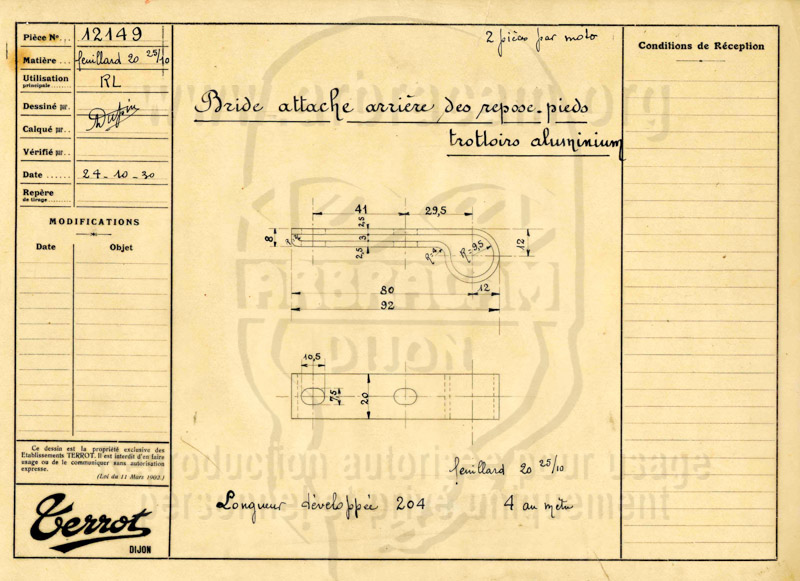 Pièce Nº... 12149
Matière ... feuillard 20 25/10
Utilisation
principale....... RL
Dessiné par.
Calqué par..
Vérifié par..
Date ...... 24-10-30
Repère
de tirage........
MODIFICATIONS
Date Objet
2 pièces par moto
Bride attache arrière des repose-pieds
trottoirs aluminium
Conditions de Réception
41 29,5
2,5
8 3 12
2,5
R=4 R=9,5
80 12
92
10,5
7,5 20
feuillard 20 25/10
Longueur développée 204 4 au mètre
Ce dessin est la propriété exclusive des
Etablissements TERROT. Il est interdit d'en faire
usage ou de le communiquer sans autorisation
expresse.
(Loi du 11 Mars 1902.)
Terrot
DIJON
www.arbracam.org
ARBRACAM
DIJON
Reproduction autorisée pour usage
personnel à titre uniquement